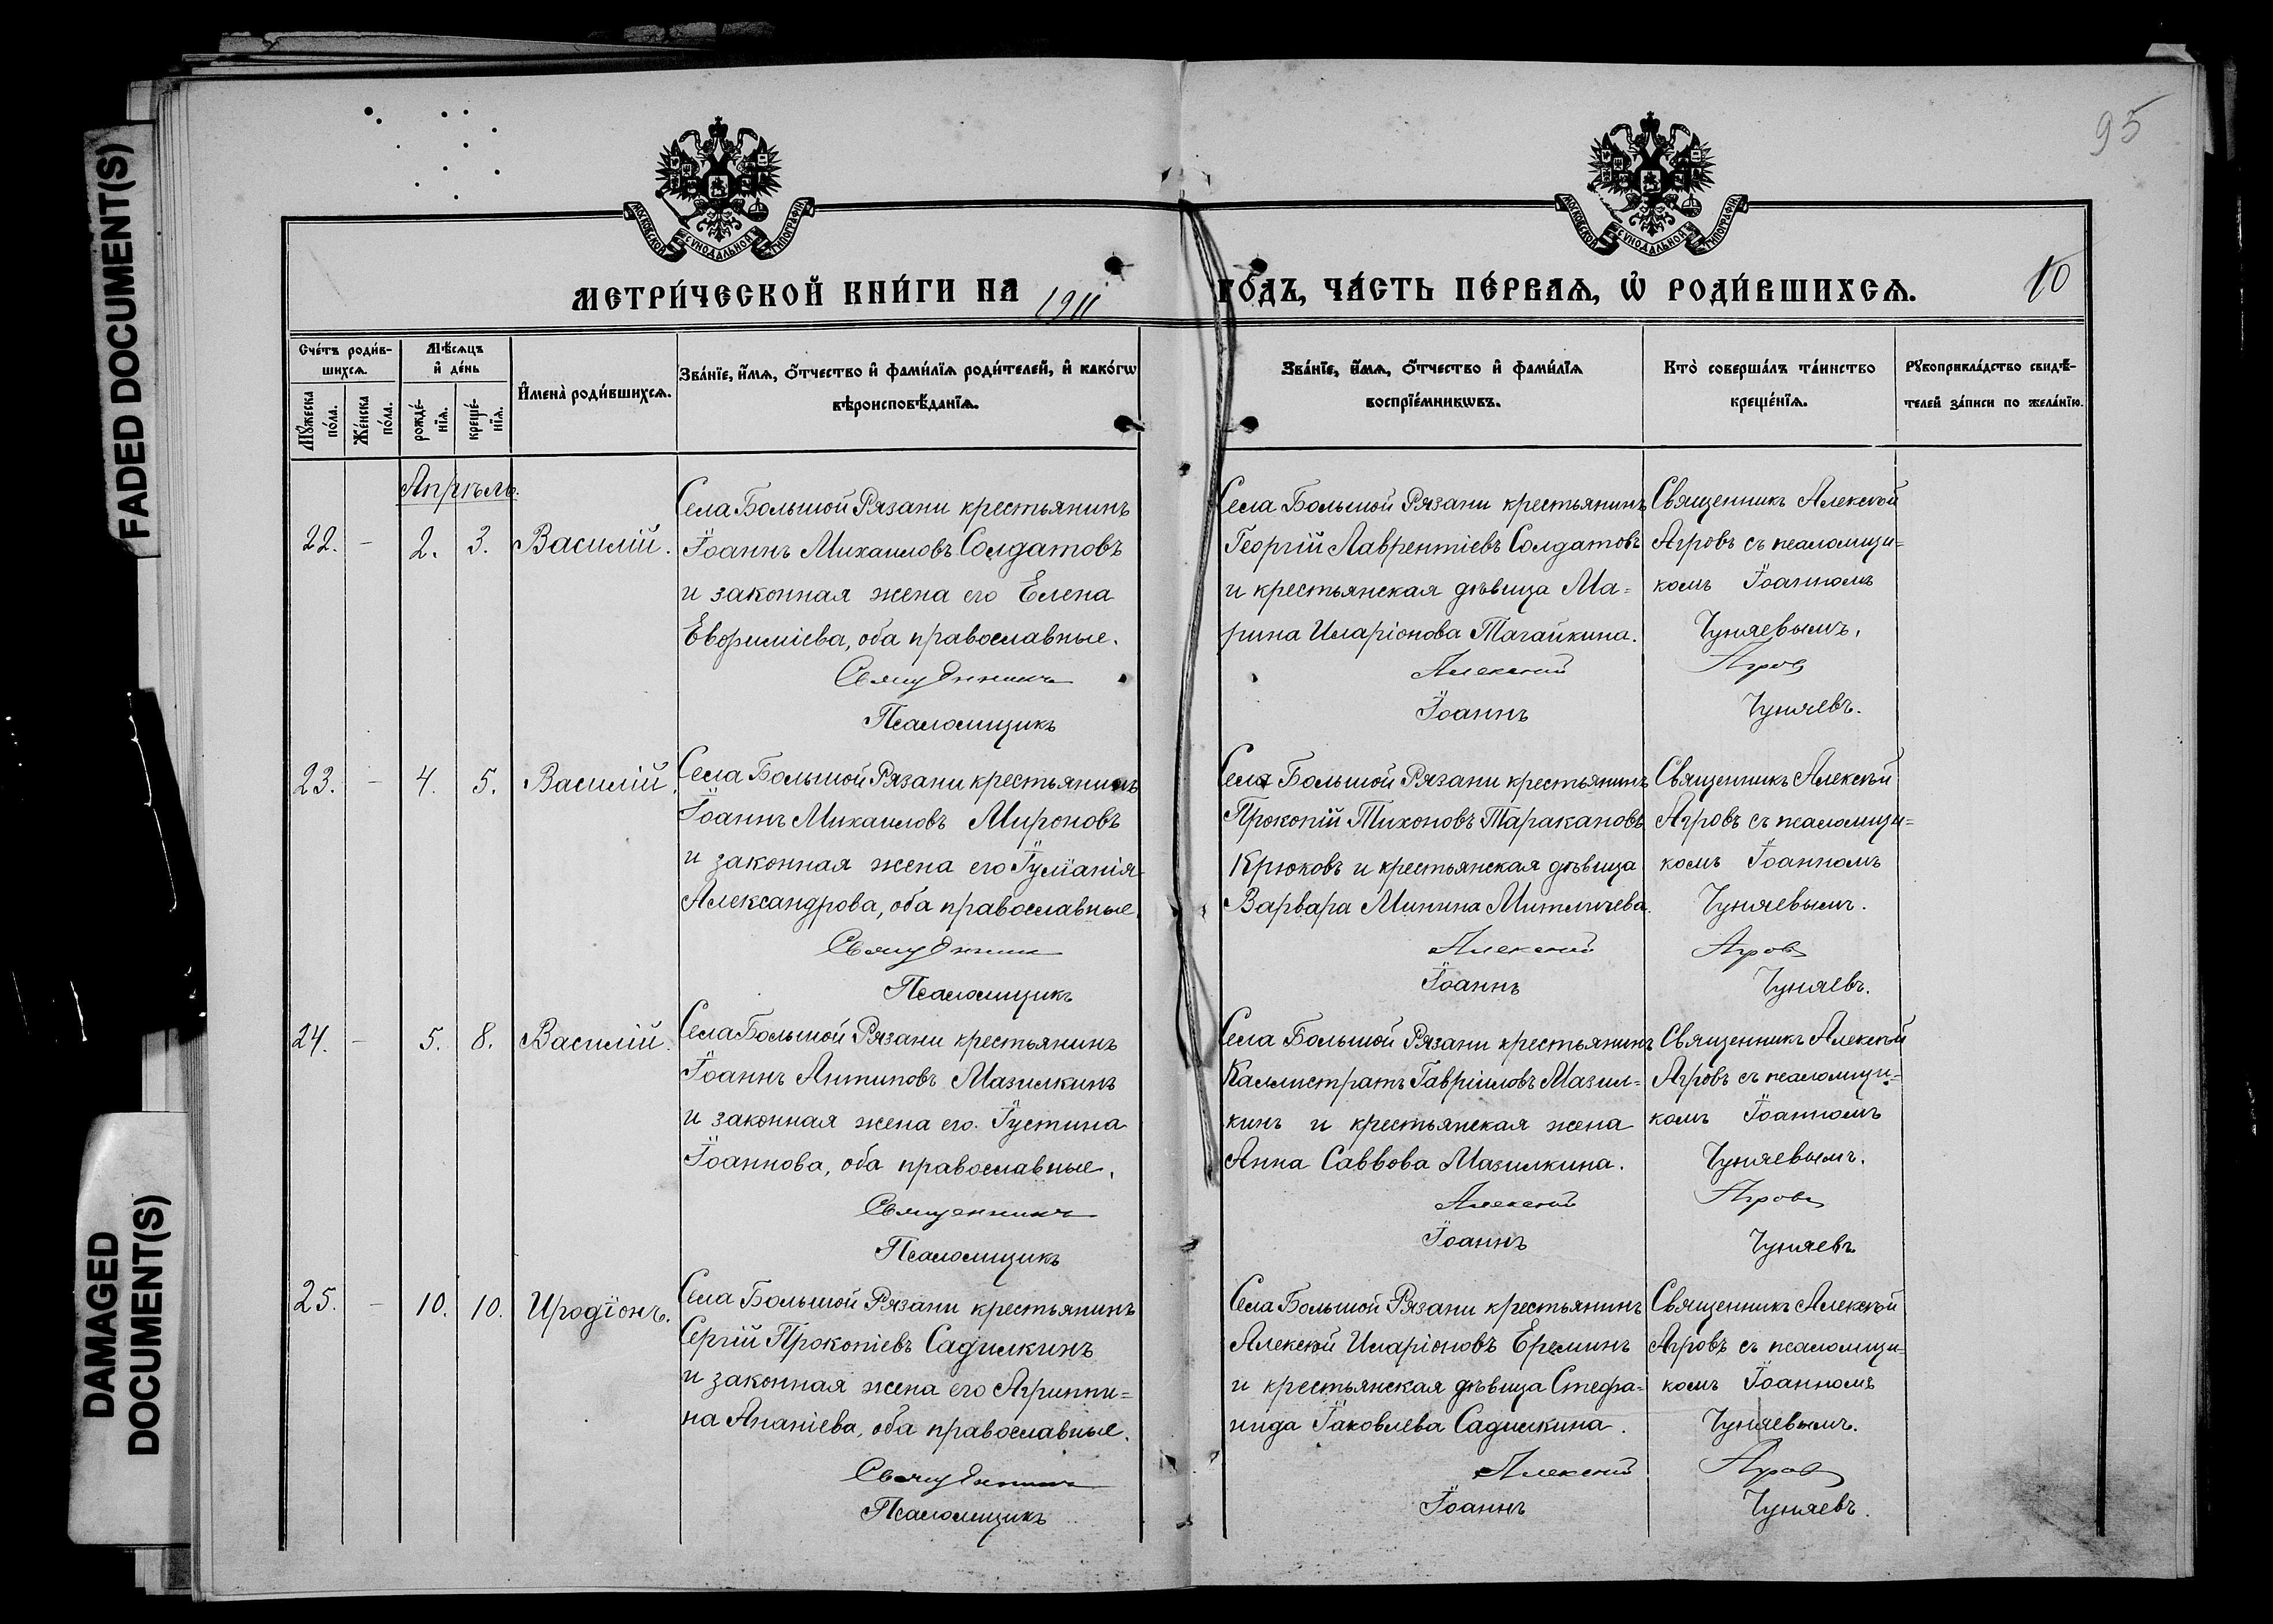 FADED DOCUMENT(S)
DAMAGED
DOCUMENT(S)
95
МОСКОВСКОЙ СѴНОДАЛЬНОЙ ТИПОГРАФІИ
МОСКОВСКОЙ СѴНОДАЛЬНОЙ ТИПОГРАФІИ
МЕТРИ́ЧЕСКОЙ КНИ́ГИ НА 1911 ГО́ДЪ, ЧА́СТЬ ПЕ́РВАѦ, Ѡ҆ РОДИ́ВШИХСѦ.
10
Сче́тъ роди́в-
шихсѧ.
Мꙋ́жеска
по́ла.
Же́нска
по́ла.
Мѣ́сѧцъ
и҆ де́нь
рожде́-
нїѧ.
креще́-
нїѧ.
И҆мена̀ роди́вшихсѧ.
Зва́нїе, и҆́мѧ, ѻ҆́тчество и҆ фами́лїѧ роди́телей, и҆ како́гѡ
вѣроисповѣ́данїѧ.
Зва́нїе, и҆́мѧ, ѻ҆́тчество и҆ фами́лїѧ
воспрїе́мникѡвъ.
Кто̀ соверша́лъ та́инство
креще́нїѧ.
Рꙋкоприкла́дство свидѣ́-
телей за́писи по жела́нїю.
Апрѣль.
22. - 2. 3. Василій.
Села Большой Рязани крестьянинъ
Іоаннъ Михаиловъ Солдатовъ
и законная жена его Елена
Евфиміева, оба православные.
Священникъ
Псаломщикъ
Села Большой Рязани крестьянинъ
Георгій Лаврентіевъ Солдатовъ
и крестьянская дѣвица Ма-
рина Иларіонова Тагайкина.
Алексій
Іоаннъ
Священникъ Алексѣй
Агровъ съ псаломщи-
комъ Іоанномъ
Чуняевымъ.
Агров
Чуняевъ.
23. - 4. 5. Василій.
Села Большой Рязани крестьянинъ
Іоаннъ Михаиловъ Мироновъ
и законная жена его Іуліанія
Александрова, оба православные.
Священник
Псаломщикъ
Села Большой Рязани крестьянинъ
Прокопій Тихоновъ Таракановъ
Крюковъ и крестьянская дѣвица
Варвара Минина Митличева.
Алексий
Іоаннъ
Священникъ Алексѣй
Агровъ съ псаломщи-
комъ Іоанномъ
Чуняевымъ.
Агровъ
Чуняевъ.
24. - 5. 8. Василій.
Села Большой Рязани крестьянинъ
Іоаннъ Антиповъ Мазилкинъ
и законная жена его Іустина
Іоаннова, оба православные.
Священникъ
Псаломщикъ
Села Большой Рязани крестьянинъ
Каллистратъ Гавріиловъ Мазил-
кинъ и крестьянская жена
Анна Саввова Мазилкина.
Алексий
Іоаннъ
Священникъ Алексѣй
Агровъ съ псаломщи-
комъ Іоанномъ
Чуняевымъ.
Агровъ
Чуняевъ
25. - 10. 10. Иродіонъ.
Села Большой Рязани крестьянинъ
Сергій Прокопіевъ Садилкинъ
и законная жена его Агриппи-
на Ананіева, оба православные.
Священникъ
Псаломщикъ
Села Большой Рязани крестьянинъ
Алексѣй Иларіоновъ Ереминъ
и крестьянская дѣвица Стефа-
нида Іаковлева Садилкина.
Алексий
Іоаннъ
Священникъ Алексѣй
Агровъ съ псаломщи-
комъ Іоанномъ
Чуняевымъ.
Агров
Чуняевъ.